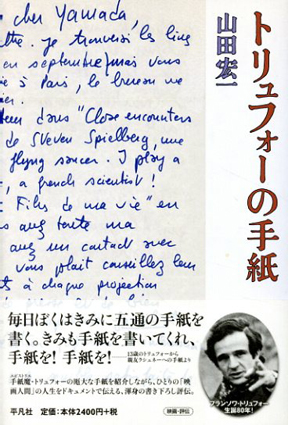 トリュフォーの手紙
山田宏一
cher Yamada,
ttre. je
en septembre) mais vous
à Paris, le bureau ne
dans "Close encounters
de Steven Spielberg, une
flying saucer. I play a
, a french scientist!
Films de ma vie" en
un contact avec
vous plait conseillez leur
ts à chaque projection
毎日ぼくはきみに五通の手紙を
書く。きみも手紙を書いてくれ、
手紙を! 手紙を!──
13歳のトリュフォーから
親友ラシュネーへの手紙より
手紙魔・トリュフォーの厖大な手紙を紹介しながら、ひとりの「映
画人間」の人生をドキュメントで伝える、渾身の書き下ろし評伝。
平凡社
定価:本体2400円+税
映画・評伝
フランソワ・トリュフォー
生誕80年!